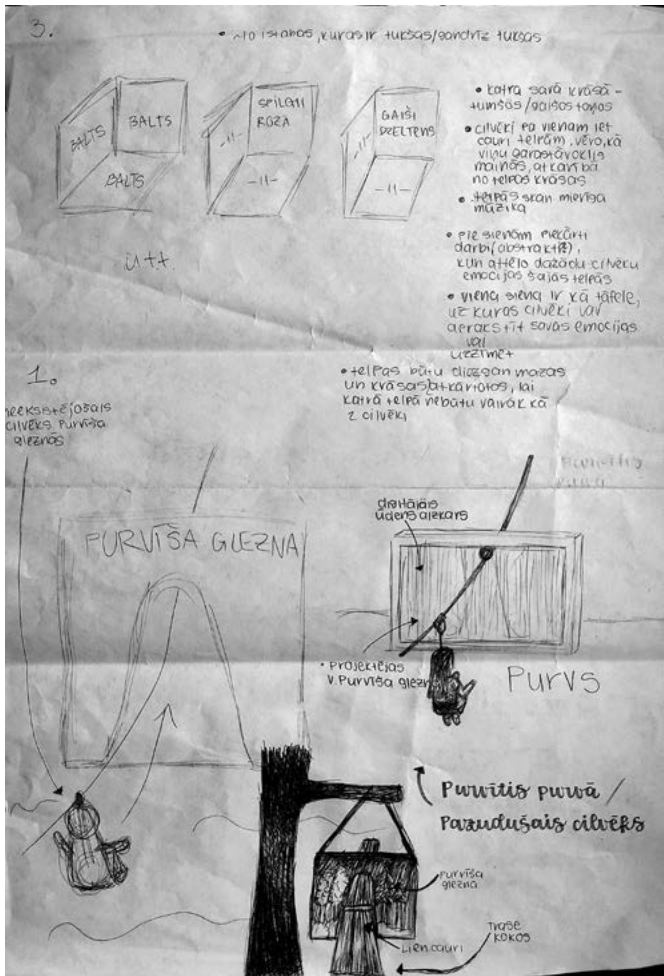 3.
• ~10 istabas, kuras ir tukšas/gandrīz tukšas
BALTS
BALTS
BALTS
SPILGTI
ROZĀ
-11-
-11-
GAIŠI
DZELTENS
-11-
-11-
u.t.t.
• katra savā krāsā -
tumšos/gaišos toņos
• cilvēki pa vienam iet
cauri telpām, vēro, kā
viņu garastāvoklis
mainās, atkarībā
no telpas krāsas
• telpās skan mierīga
mūzika
• pie sienām piekārti
darbi (abstrakti?),
kuri attēlo dažādu cilvēku
emocijas šajās telpās
• viena siena ir kā tāfele,
uz kuras cilvēki var
aprakstīt savas emocijas
vai
uzzīmēt
• telpas būtu diezgan mazas
un krāsas atkārtotos, lai
katrā telpā nebūtu vairāk kā
2 cilvēki
1.
neeksistējošais
cilvēks Purvīša
gleznās
PURVĪŠA GLEZNA
digitālais
ūdens aizkars
• projektējas
V. Purvīša glezna
PURVS
Purvītis purvā /
Pazudušais cilvēks
purvīša
glezna
Lien cauri
Trase
kokos